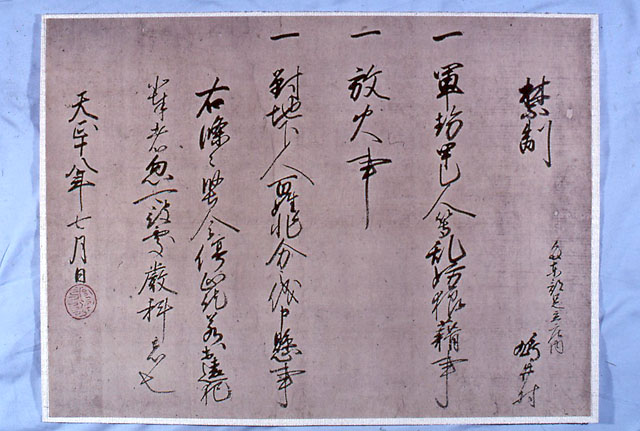 禁制
足立庄内
鳩井村
一 軍勢甲乙人等乱妨狼藉事
一 放火事
一 對地下人百姓非分儀申懸事
右條々堅令停止訖若於違犯
輩者忽可被處嚴科者也
天正十八年七月日